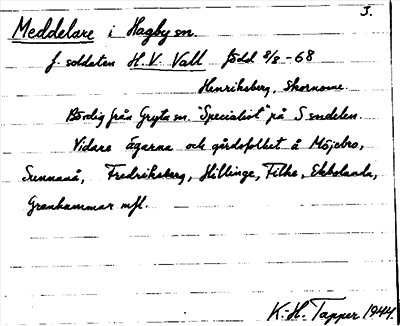 3.
Meddelare i Hagby sn.
f. soldaten H.V. Vall född 8/8-68
Henriksberg, Skornome
Bördig från Gryta sn. "Specialist" på S sndelen.
Vidare ägarna och gårdsfolket å Möjbro,
Sunnanå, Fredriksberg, Hillinge, Filke, Ekbolanda,
Granhammar mfl.
K.-H. Tapper 1944.